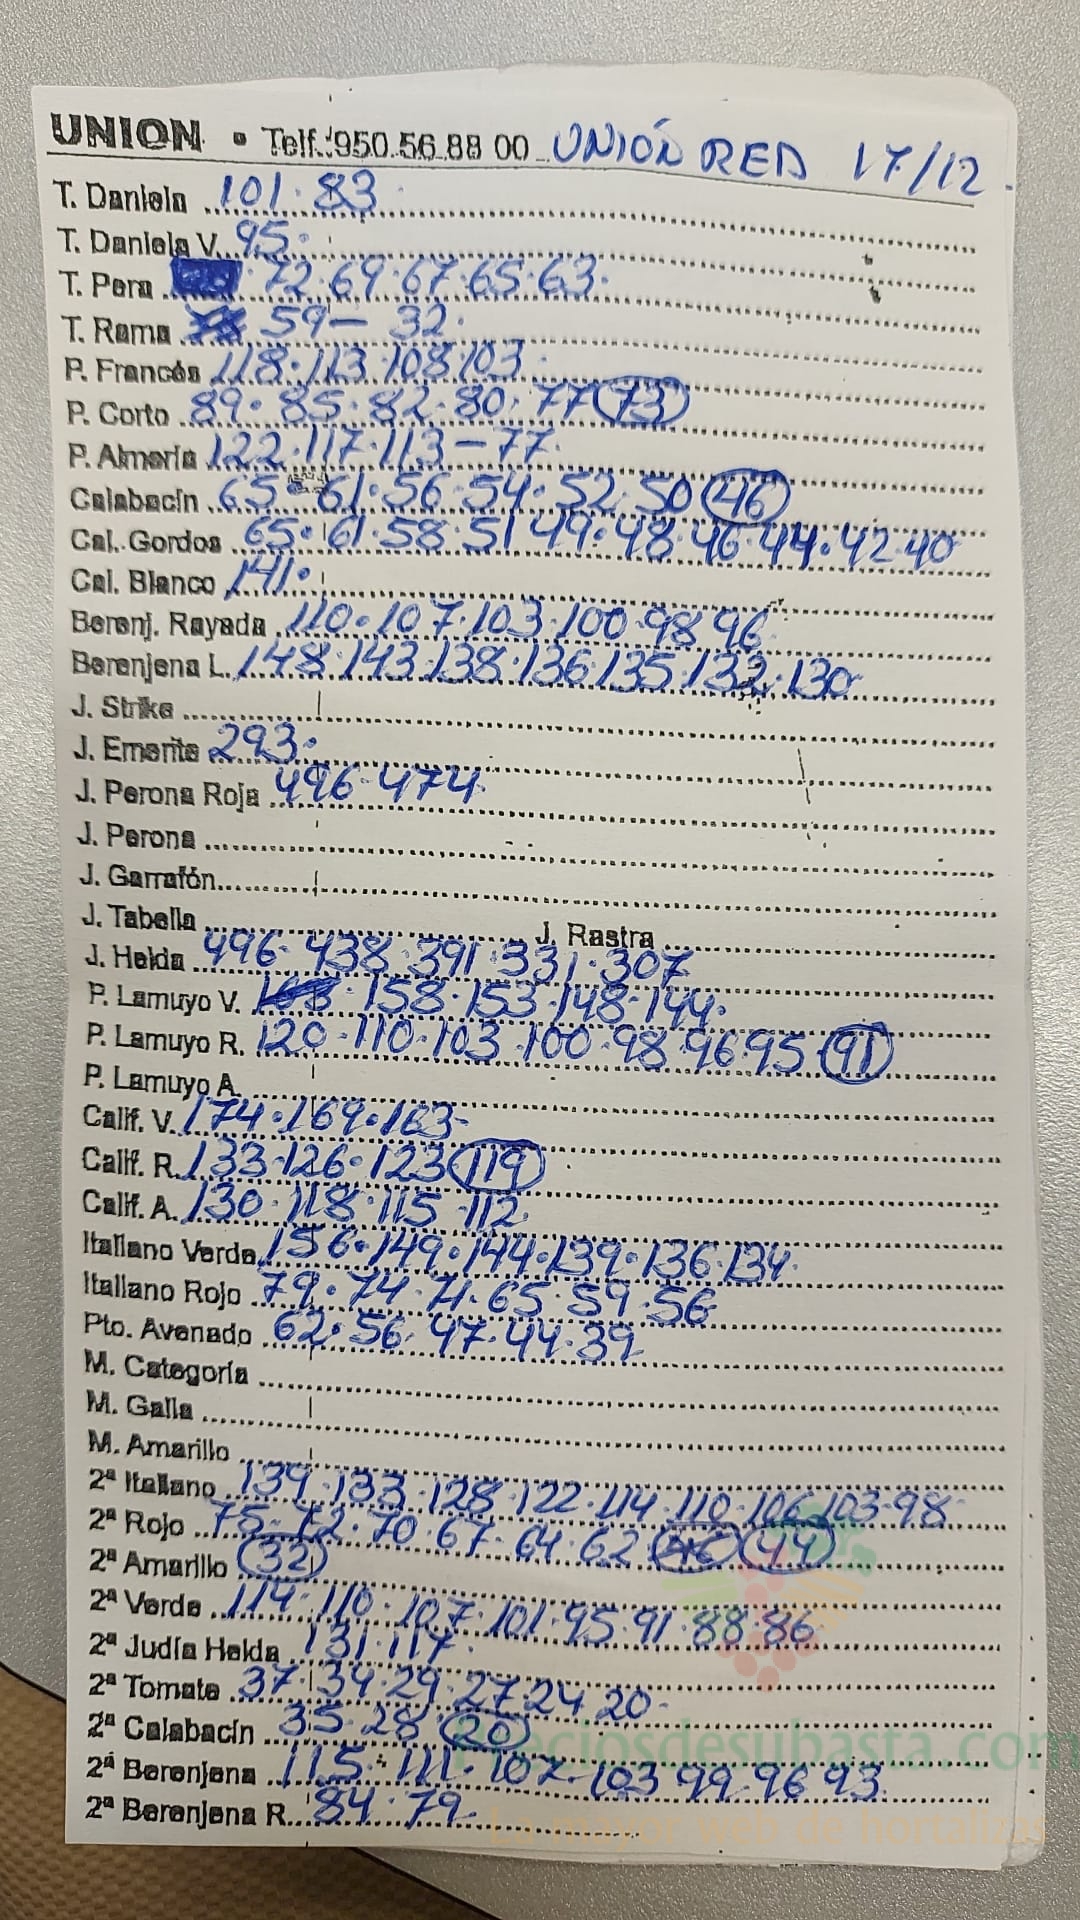 UNION • Telf.: 950.56.88 00 UNIÓN RED 17/12
T. Daniela 101·83·
T. Daniela V. 95·
T. Pera 72·69·67·65·63·
T. Rama 59— 32·
P. Francés 118·113·108·103·
P. Corto 89·85·82·80·77 73
P. Almería 122·117·113—77·
Calabacín 65·61·56·54·52·50 46
Cal. Gordos 65·61·58·51·49·48·46·44·42·40
Cal. Blanco 141·
Berenj. Rayada 110·107·103·100·98·96·
Berenjena L. 148·143·138·136·135·132·130
J. Strike
J. Emerite 293·
J. Perona Roja 496·474
J. Perona
J. Garrafón
J. Tabella J. Rastra
J. Helda 496·438·391·331·307
P. Lamuyo V. 158·153·148·144·
P. Lamuyo R. 120·110·103·100·98·96·95 91
P. Lamuyo A.
Calif. V. 174·169·163-
Calif. R. 133·126·123 119
Calif. A. 130·118·115·112
Italiano Verde 156·149·144·139·136·134·
Italiano Rojo 79·74·71·65·59·56
Pto. Avenado 62·56·47·44·39
M. Categoría
M. Galla
M. Amarillo
2ª Italiano 139·133·128·122·114·110·106·103·98
2ª Rojo 75·72·70·67·64·62 44
2ª Amarillo 32
2ª Verde 114·110·107·101·95·91·88·86
2ª Judía Helda 131·117·
2ª Tomate 37·34·29·27·24·20·
2ª Calabacín 35·28 20
2ª Berenjena 115·111·107·103·99·96·93
2ª Berenjena R. 84·79
Preciosdesubasta.com
La mayor web de hortalizas